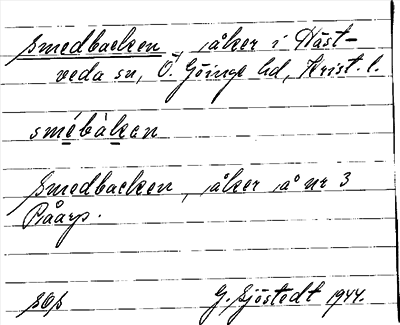 Smedbacken, åker i Häst-
veda sn, Ö. Göinge hd, Krist. l.
smébàkan
Smedbacken, åker å nr 3
Råarp.
G. Sjöstedt 1944.